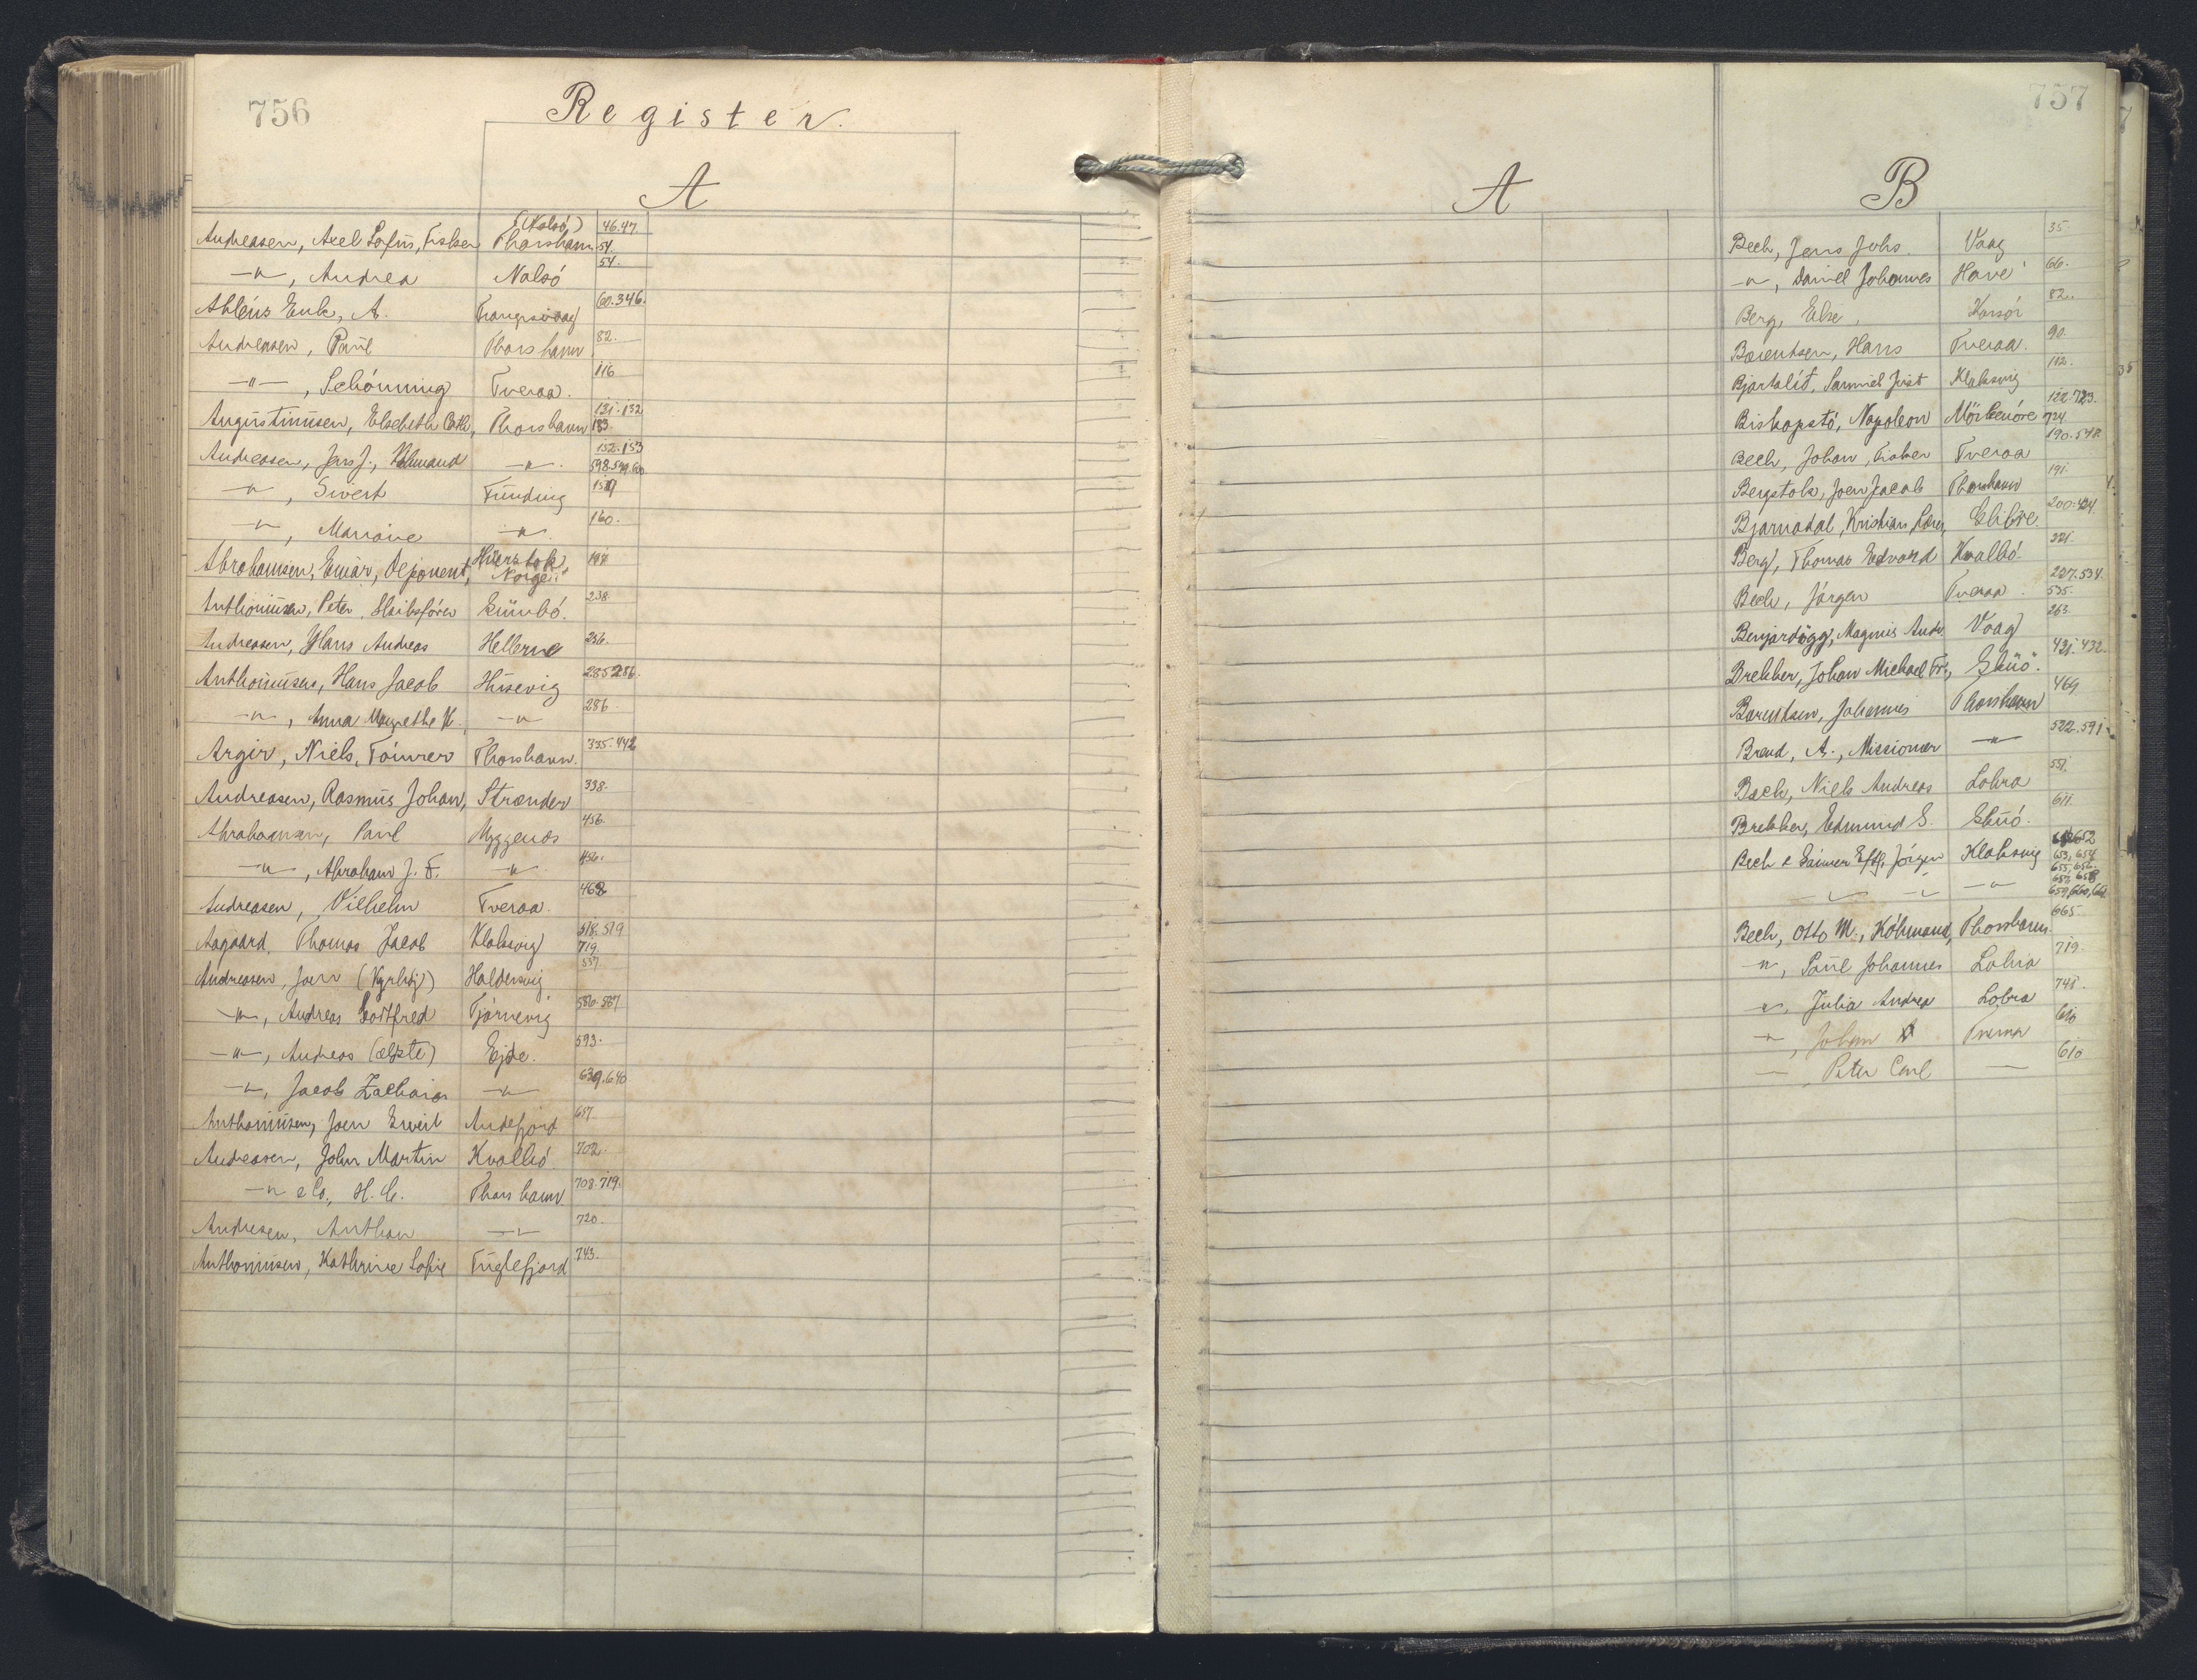 756
Register.
A
Andreasen, Axel Sofus, Fisker (Nolsö) Thorshavn 46.47. 54.
—"—, Andrea Nolsö 54.
A. Trangisvaag 60.346.
Andreasen, Paul Thorshavn 82.
—"—, Schönning Tveraa. 116
Augustinusen, Elsebeth Cath., Thorshavn 131.132 133.
Andreasen, Jens J., Kbmand —"—. 152.153 598.599.600
—"—, Sivert Funding
—"—, Marione —"—. 160.
Abrahamsen, Einar, Deponent, Norge 194.
Anthoniusen, Peter, Skibsfører Eiunbö. 238
Andreasen, Hans Andreas Hellerne 256.
Anthoniusen, Hans Jacob Husevig 285 286.
—"—, Anna Magrethe K. —"— 286
Argir, Niels, Tömrer Thorshavn. 335.442
Andreasen, Rasmus Johan, Strænder 338.
Abrahamsen, Paul Myggenæs 456.
—"—, Abraham J. F. —"— 456.
Andreasen, Vilhelm Tveraa. 462
Aagaard, Thomas Jacob Klaksvig 518.519 719.
Andreasen, Joen (Kyrhöj) Haldersvig 537
—"—, Andreas Godtfred Tjörnevig 586.587
—"—, Andreas (ældste) Ejde. 593.
—"—, Jacob Zacharias —"— 639.640
Anthoniusen, Joen Eivert Andefjord 657
Andreasen, John Martin Kvalbö 702.
—"— & Co., H. C. Thorshavn 708.719.
Andresen, Anthon —"— 720.
Anthoniusen, Kathrine Sofie Fuglefjord 743.
757
A
B
Bech, Jens Johs. Vaag 35.
—"—, Daniel Johannes Hove 66.
Berg, Else, Korsör 82.
Barentsen, Hans Tveraa. 90.
Bjartalid, Samuel Just Klaksvig 112.
Bispopstö, Napoleon Mörkenöre 122.723. 724
Bech, Johan, Fisker Tveraa 190.548.
Bergstok, Joen Jacob Thorshavn 191.
Bjarnadal, Kristian, Glibre. 200.424.
Berg, Thomas Edvard Kvalbö. 221.
Bech, Jörgen Tveraa. 227.534. 535.
Benjardögg, Magnus Andr. Vaag 263.
Brekker, Johan Michael Fr., Skuö. 431.432.
Barentsen, Johannes Thorshavn 469
Brend, A., Missionær —"— 522.591.
Bæk, Niels Andreas Lobra 551.
Brekker, Edmund S. Skuö. 611.
Bech & Jörgen Klaksvig 652 653, 654 655, 656. 657, 658
—"— —"— —"— 659, 660, 661
Bech, Otto M., Köbmand, Thorshavn. 665.
—"—, Paul Johannes Lobra 719.
—"—, Julia Andrea Lobra 741.
—"—, Johan Tveraa 610
— , Peter Carl — 610